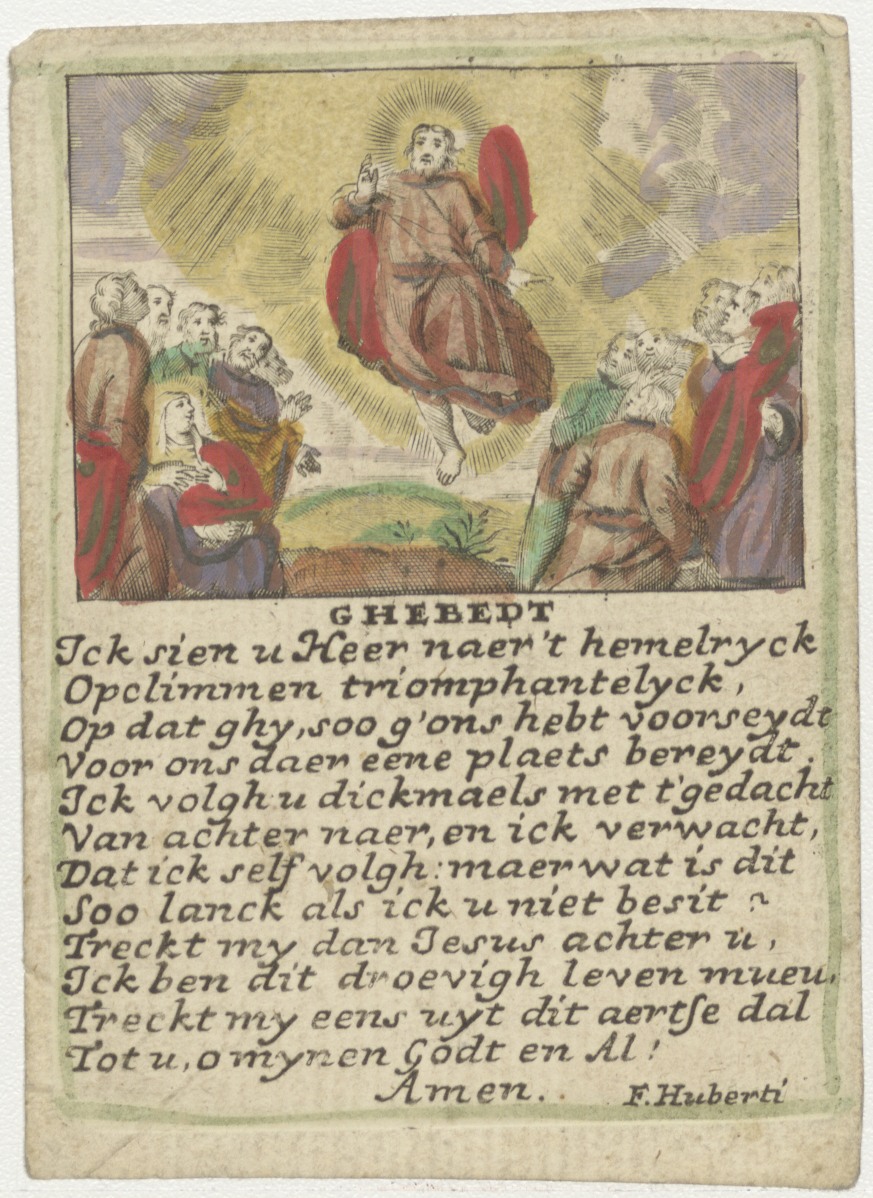 GHEBEDT
Ick sien u Heer naer't hemelryck
Opclimmen triomphantelyck,
Op dat ghy, soo g'ons hebt voorseydt
Voor ons daer eene plaets bereydt.
Ick volgh u dickmaels met t'gedacht
Van achter naer, en ick verwacht,
Dat ick self volgh: maer wat is dit
Soo lanck als ick u niet besit?
Treckt my dan Jesus achter u,
Ick ben dit droevigh leven mueu,
Treckt my eens uyt dit aertse dal
Tot u, o mynen Godt en Al!
Amen.
F. Huberti